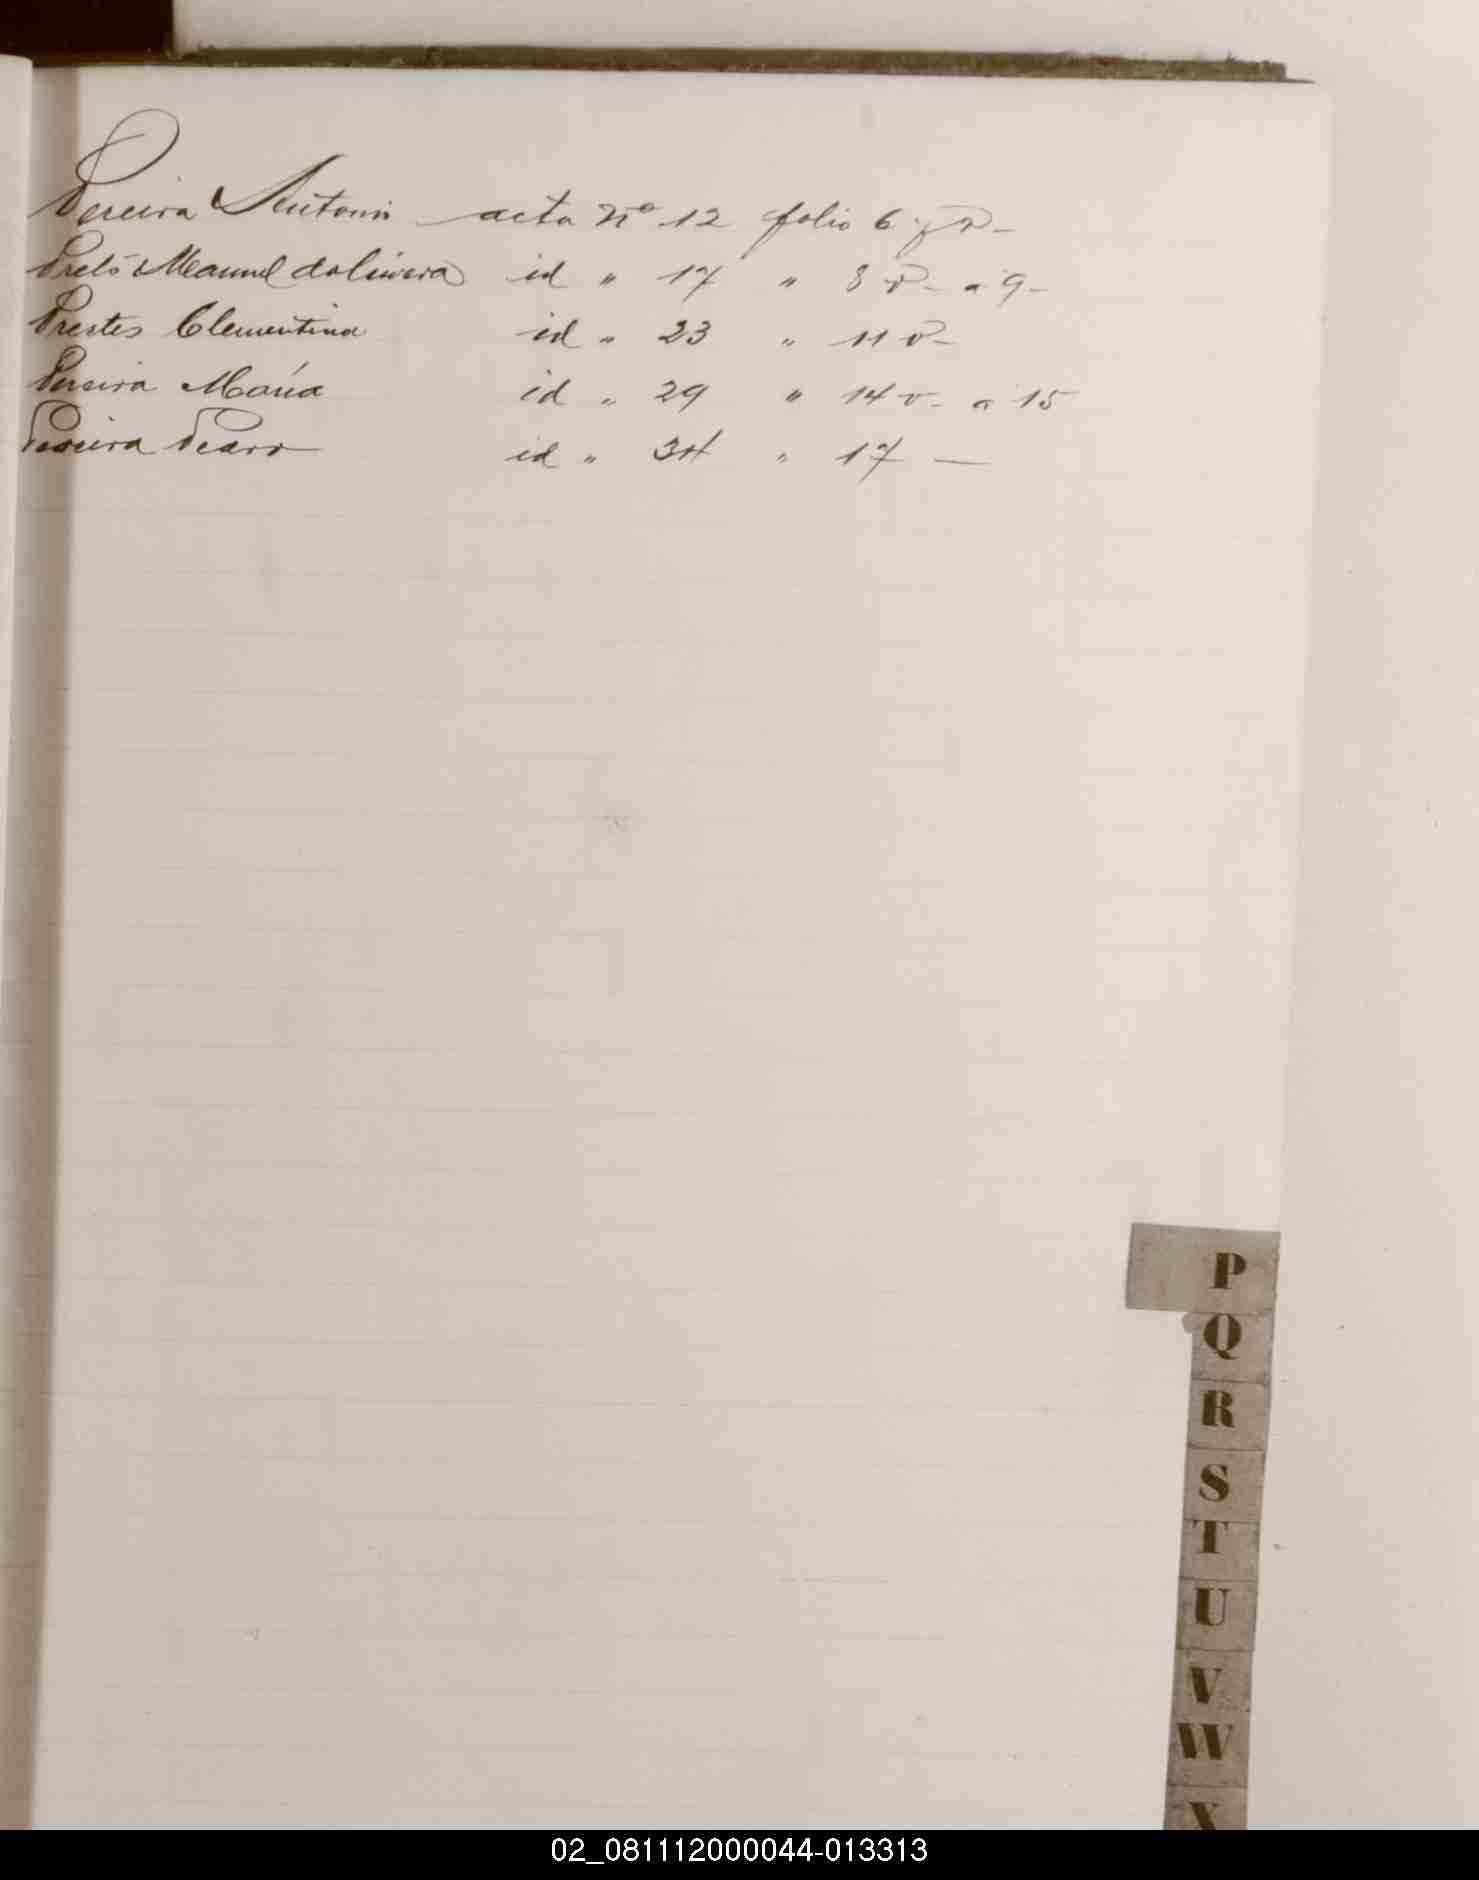 Pereira Antonio acta nº 12 folio 6 y v-
Manuel id " 17 " 8 v- a 9-
Prestes Clementina id " 23 " 11 v-
Pereira María id " 29 " 14 v- a 15
Pereira Pedro id " 34 " 17 —
P
Q
R
S
T
U
V
W
X
02_081112000044-013313